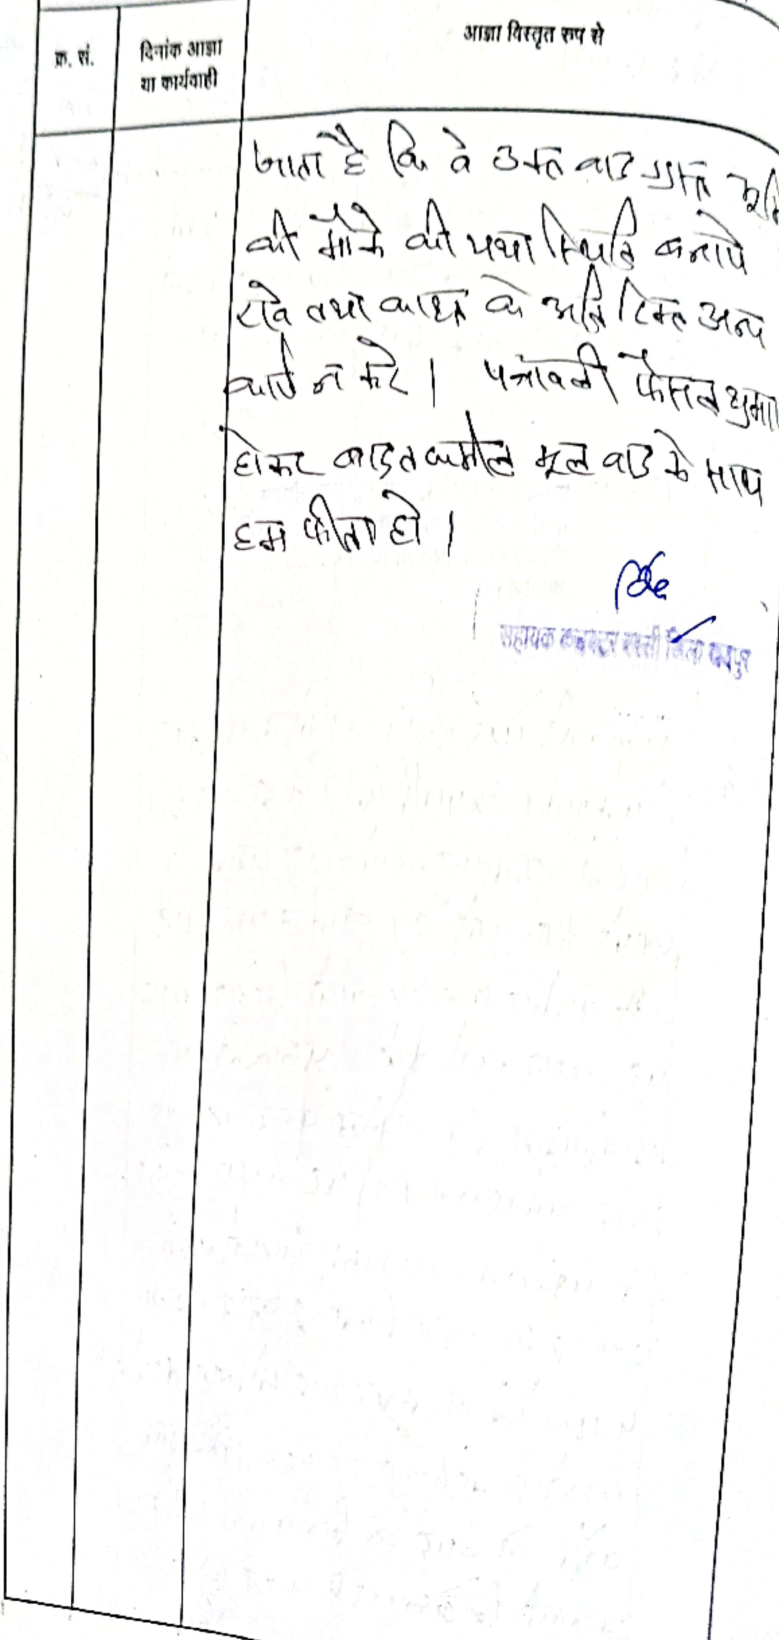 क्र. सं.
दिनांक आज्ञा
या कार्यवाही
आज्ञा विस्तृत रुप से
जाता है कि वे उक्त वाद ग्रस्त
की मौके की यथा स्थिति बनाये
रखे तथा काश्त के अतिरिक्त अन्य
कार्य न करे। पत्रावली फैसल शुमा
होकर बाद तकमील मूल वाद के साथ
हम फीता हो।
सहायक कलक्टर बस्सी जिला जयपुर